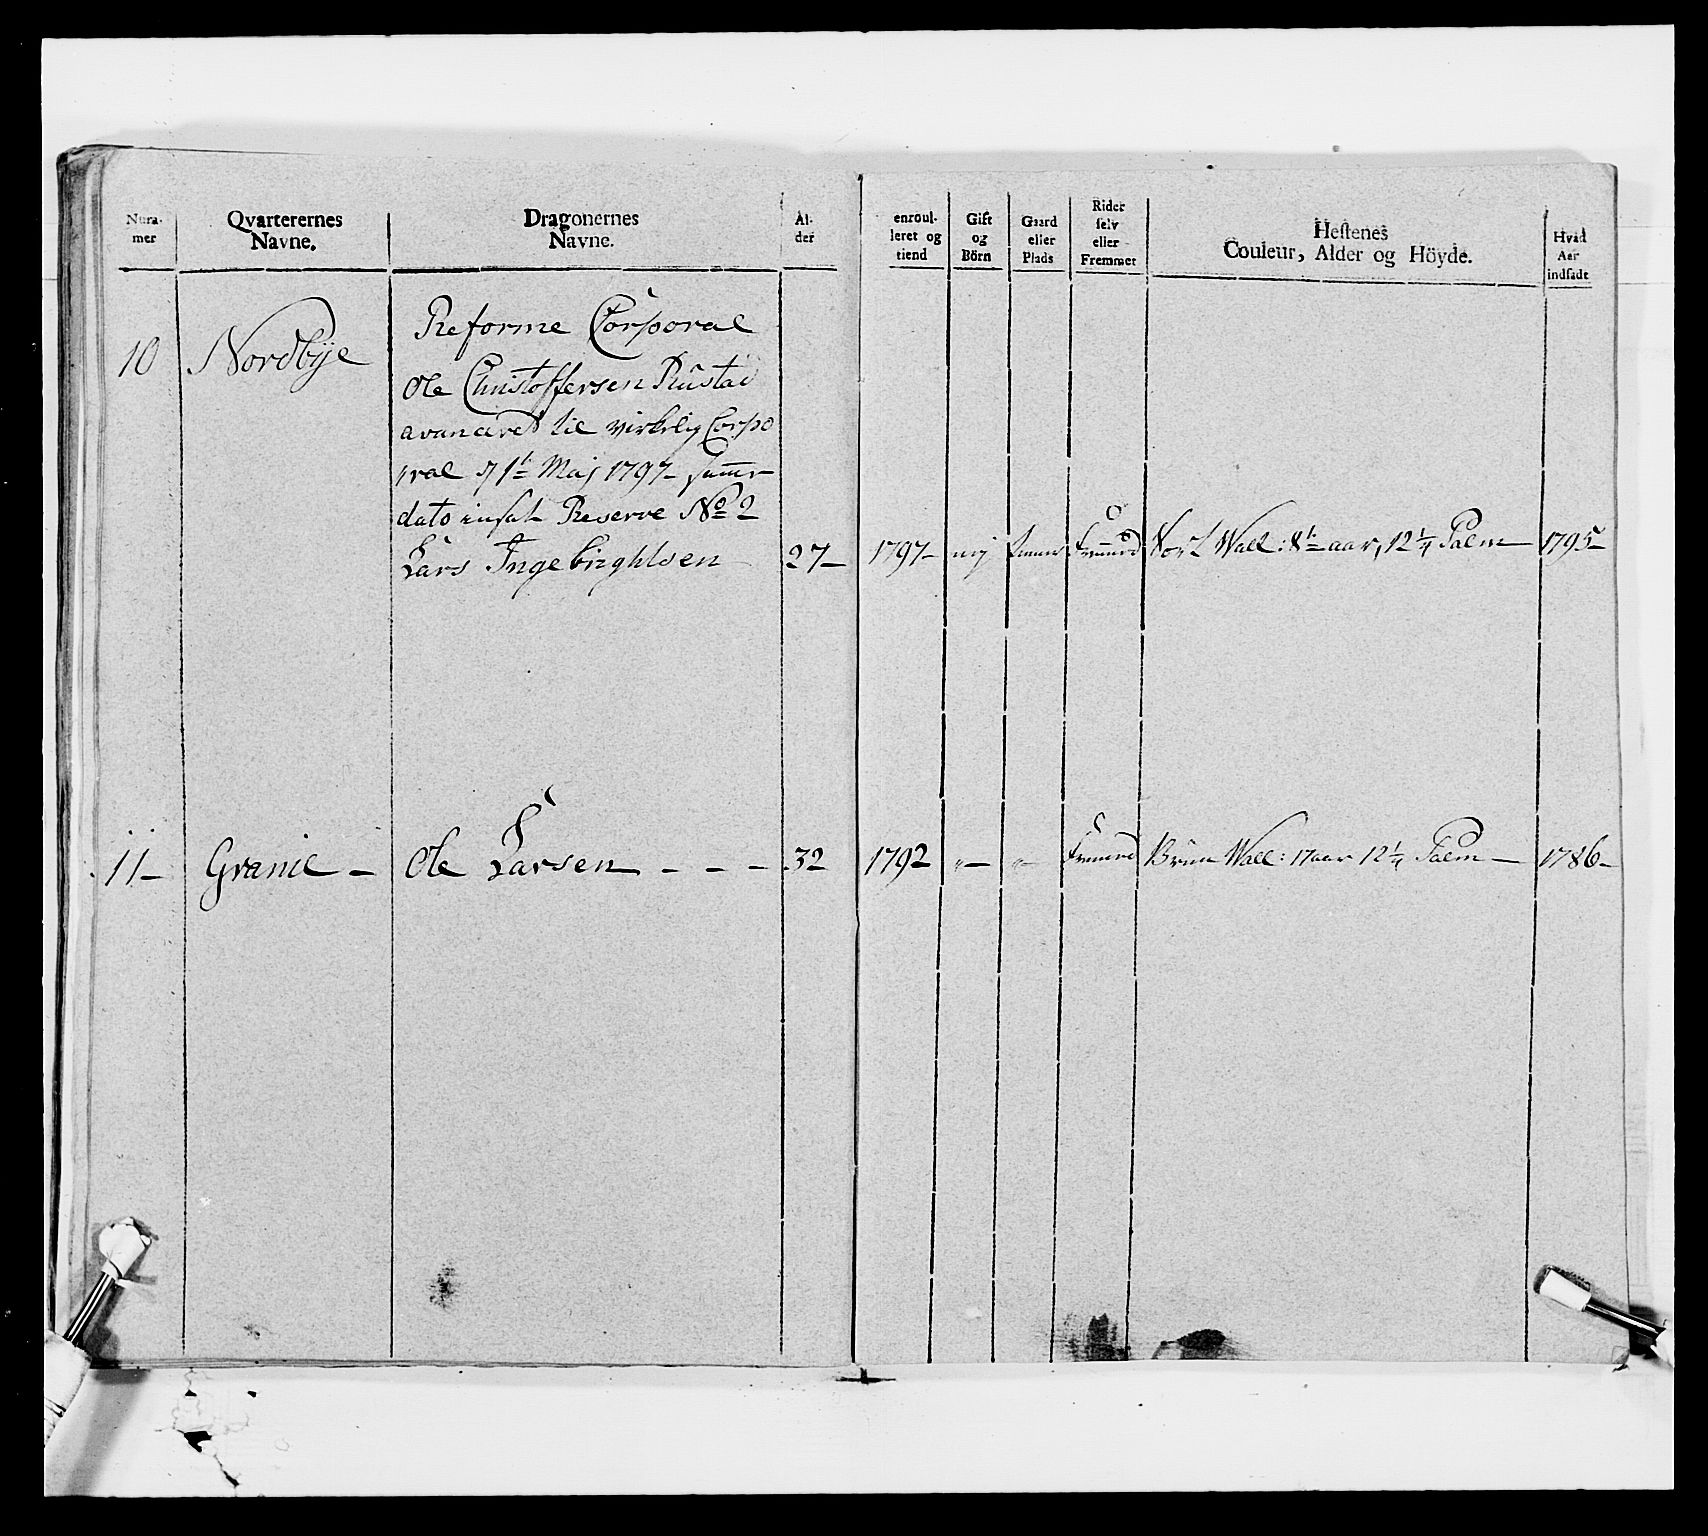 Num-
mer
Qvarterernes
Navne.
Dragonernes
Navne.
Al-
der
enroul-
leret og
tiend
Gift
og
Börn
Gaard
eller
Plads
Rider
selv
eller
Fremmet
Hestenes
Couleur, Alder og Höyde.
Hvad
Aar
indsadt
10 Nordbÿe Reforme Corporal
Ole Christoffersen Rustad
avanceret til virkelig Corpo
ral d 1te Maj 1797
dato insat Reserve No 2
Lars Ingebrightsen 27 – 1797 – nej Fremed Sort Wall: 8te aar, 12 1/4 Palm – 1795 –
11 – Granie – Ole Larsen – – – 32 1792 „ – „ Fremed Brun Wall: 17 aar 12 1/4 Palm – 1786 –